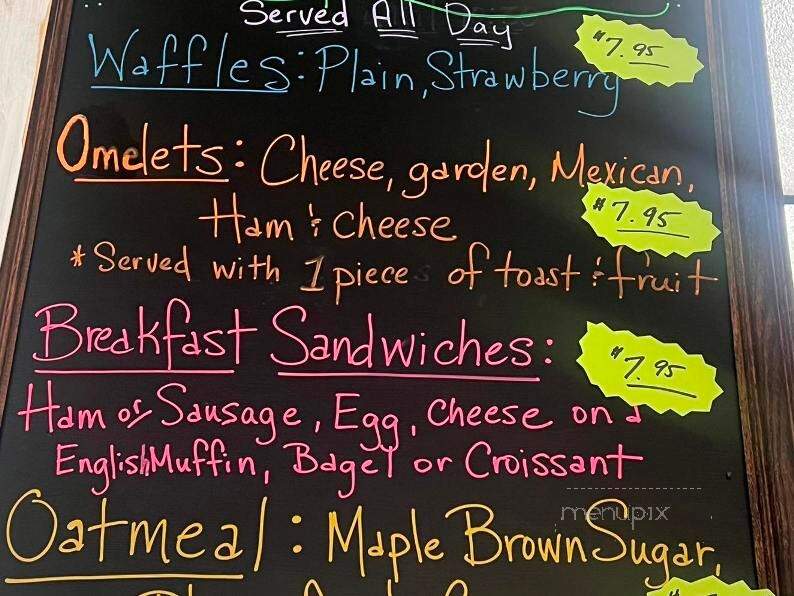 Served All Day
Waffles: Plain, Strawberry
$7.95
Omelets: Cheese, garden, Mexican,
Ham & Cheese
$7.95
*Served with 1 piece of toast & fruit
Breakfast Sandwiches:
$7.95
Ham or Sausage, Egg, Cheese on a
English Muffin, Bagel or Croissant
menupix
Oatmeal: Maple Brown Sugar,